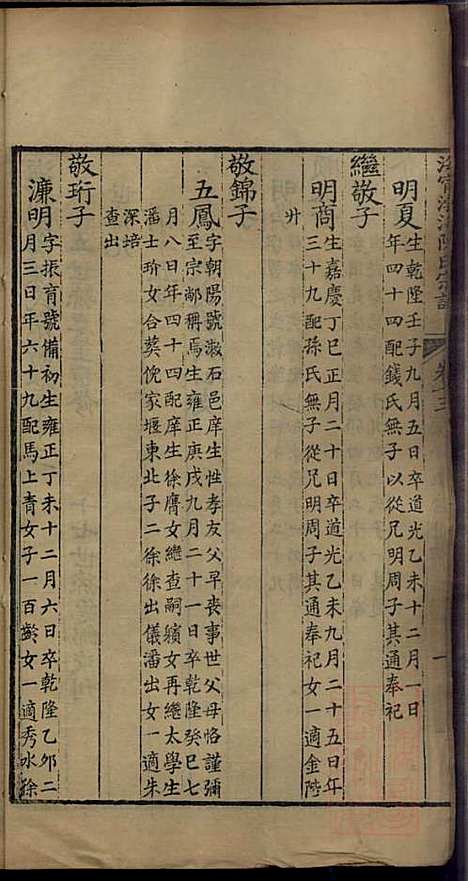 明夏
生乾隆壬子九月五日卒道光乙未十二月一日
年四十四配錢氏無子以從兄明周子其通奉祀
繼敬子
明商
生嘉慶丁巳正月二十日卒道光乙未九月二十五日年
三十九配孫氏無子從兄明周子其通奉祀女一適金陞
敬錦子
五鳳
字朝陽號淑石邑庠生性孝友父早喪事世父母恪謹彌
至宗鄰稱焉生雍正庚戌九月二十一日卒乾隆癸巳七
月八日年四十四配庠生徐膺女繼查嗣嬪女再繼太學生
潘士玠女合葬倪家堰東北子二徐徐出儀潘出女一適朱
深培
查出
敬珩子
濂明
字振育號備初生雍正丁未十二月六日卒乾隆乙卯二
月三日年六十九配馬上青女子一百齡女一適秀水徐
卷十三